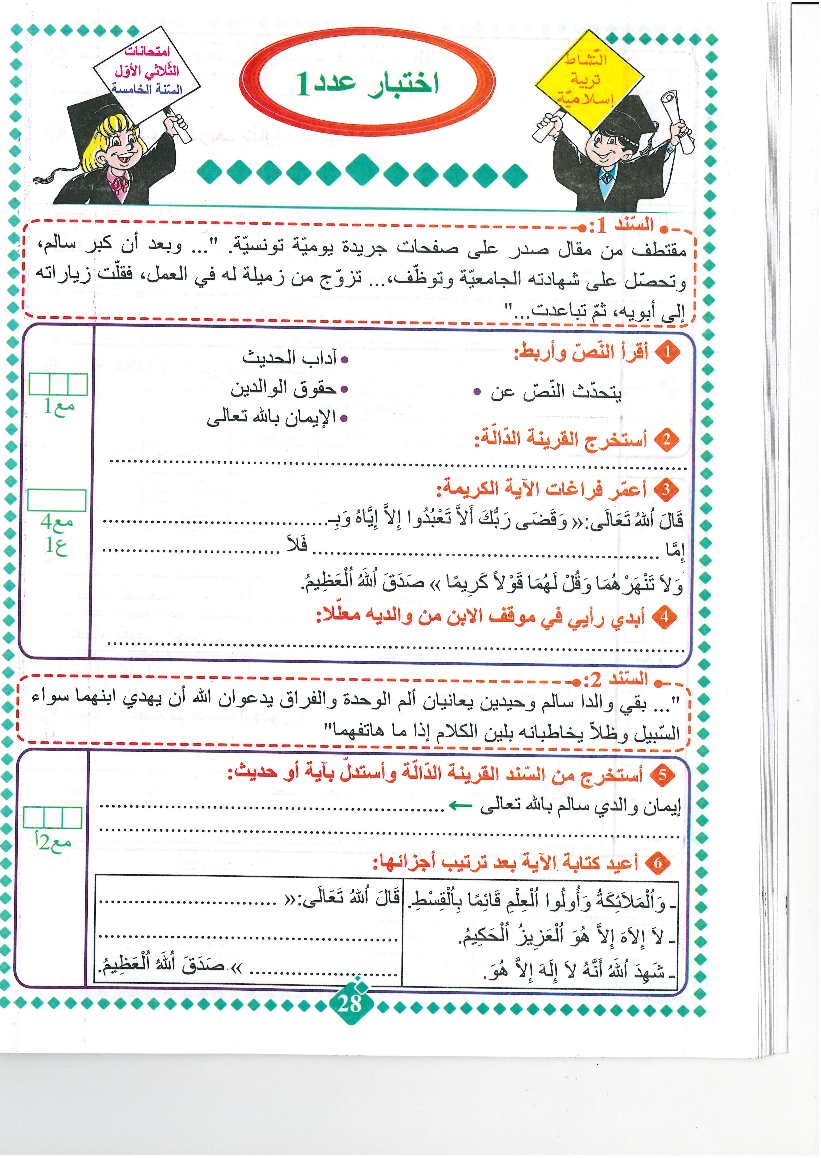 امتحانات
الثّلاثي الأوّل
السّنة الخامسة
اختبار عدد1
النّشاط
تربية
إسلاميّة
السّند 1:
مقتطف من مقال صدر على صفحات جريدة يوميّة تونسيّة. "... وبعد أن كبر سالم،
وتحصّل على شهادته الجامعيّة وتوظّف،... تزوّج من زميلة له في العمل، فقلّت زياراته
إلى أبويه، ثمّ تباعدت..."
1 أقرأ النّصّ وأربط:
يتحدّث النّصّ عن •
• آداب الحديث
• حقوق الوالدين
• الإيمان بالله تعالى
مع1
2 أستخرج القرينة الدّالّة:
3 أعمّر فراغات الآية الكريمة:
قَالَ اُللهُ تَعَالَى:« وَقَضَى رَبُّكَ أَلاَّ تَعْبُدُوا إِلاَّ إِيَّاهُ وَبِـ........
إِمَّا ........ فَلاَ ........
وَلاَ تَنْهَرْهُمَا وَقُلْ لَهُمَا قَوْلاً كَرِيمًا » صَدَقَ اُللهُ اُلْعَظِيمُ.
مع4
ع1
4 أبدي رأيي في موقف الابن من والديه معلّلا:
السّند 2:
"... بقي والدا سالم وحيدين يعانيان ألم الوحدة والفراق يدعوان الله أن يهدي ابنهما سواء
السّبيل وظلاّ يخاطبانه بلين الكلام إذا ما هاتفهما"
5 أستخرج من السّند القرينة الدّالّة وأستدلّ بآية أو حديث:
إيمان والدي سالم بالله تعالى ← ........
مع2أ
6 أعيد كتابة الآية بعد ترتيب أجزائها:
ـ وَاُلْمَلاَئِكَةُ وَأُولُوا اُلْعِلْمِ قَائِمًا بِاُلْقِسْطِ.
ـ لاَ إِلاَهَ إِلاَّ هُوَ اُلْعَزِيزُ اُلْحَكِيمُ.
ـ شَهِدَ اُللهُ أَنَّهُ لاَ إِلَهَ إِلاَّ هُوَ.
قَالَ اُللهُ تَعَالَى:« ........
........ » صَدَقَ اُللهُ اُلْعَظِيمُ.
28